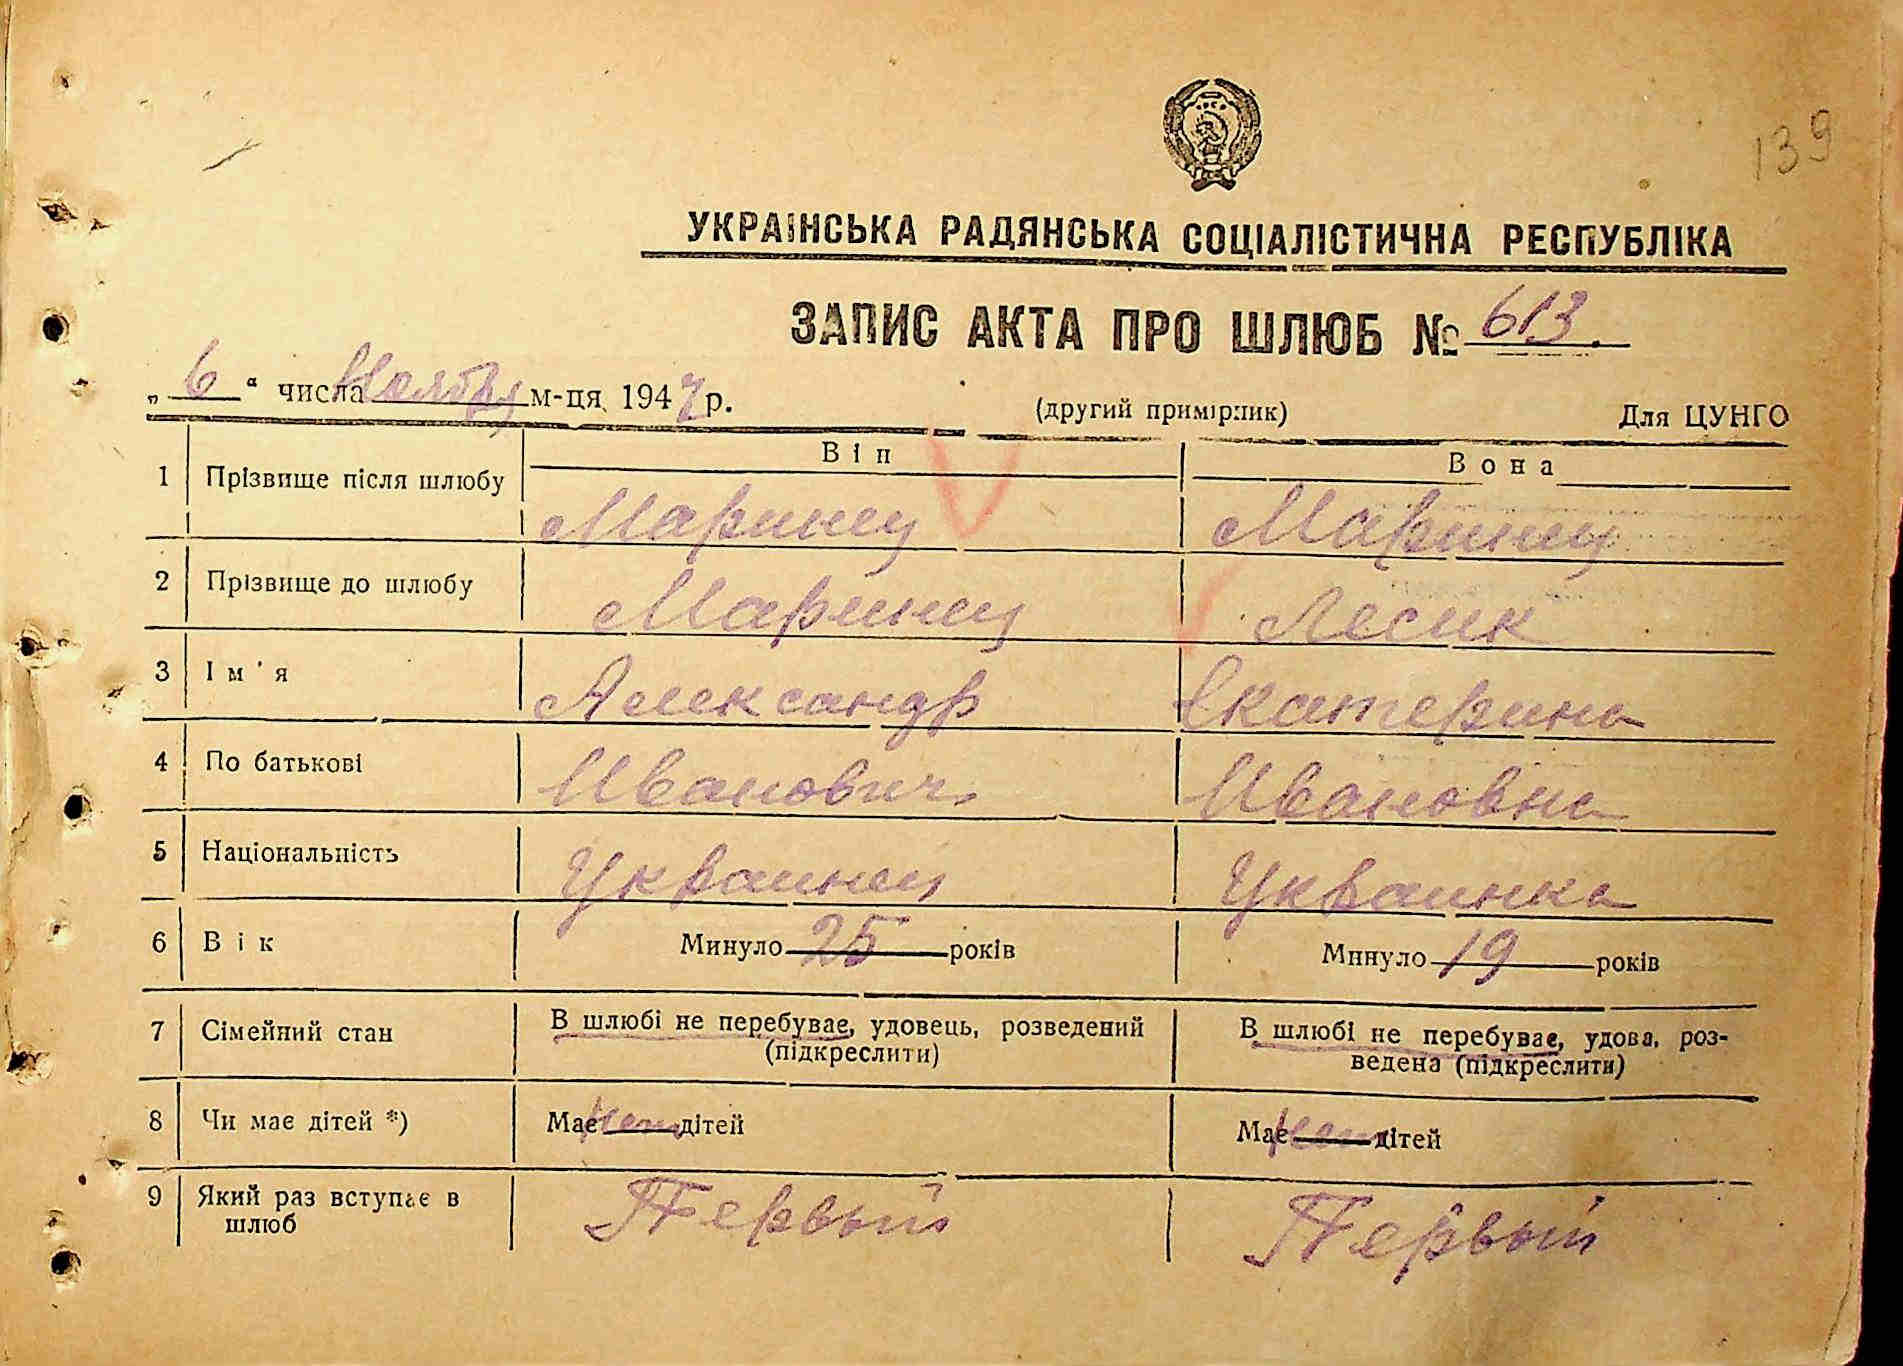 139
УКРАЇНСЬКА РАДЯНСЬКА СОЦІАЛІСТИЧНА РЕСПУБЛІКА
ЗАПИС АКТА ПРО ШЛЮБ № 613.
„ 6 “ числа Ноября м-ця 1947 р. (другий примірник) Для ЦУНГО
Він Вона
1 Прізвище після шлюбу Маринец Маринец
2 Прізвище до шлюбу Маринец Лесик
3 Ім'я Александр Екатерина
4 По батькові Иванович Ивановна
5 Національність Украинец Украинка
6 Вік Минуло 25 років Минуло 19 років
7 Сімейний стан В шлюбі не перебуває, удовець, розведений В шлюбі не перебуває, удова, роз-
(підкреслити) ведена (підкреслити)
8 Чи має дітей *) Має нет дітей Має нет дітей
9 Який раз вступає в Первый Первый
шлюб